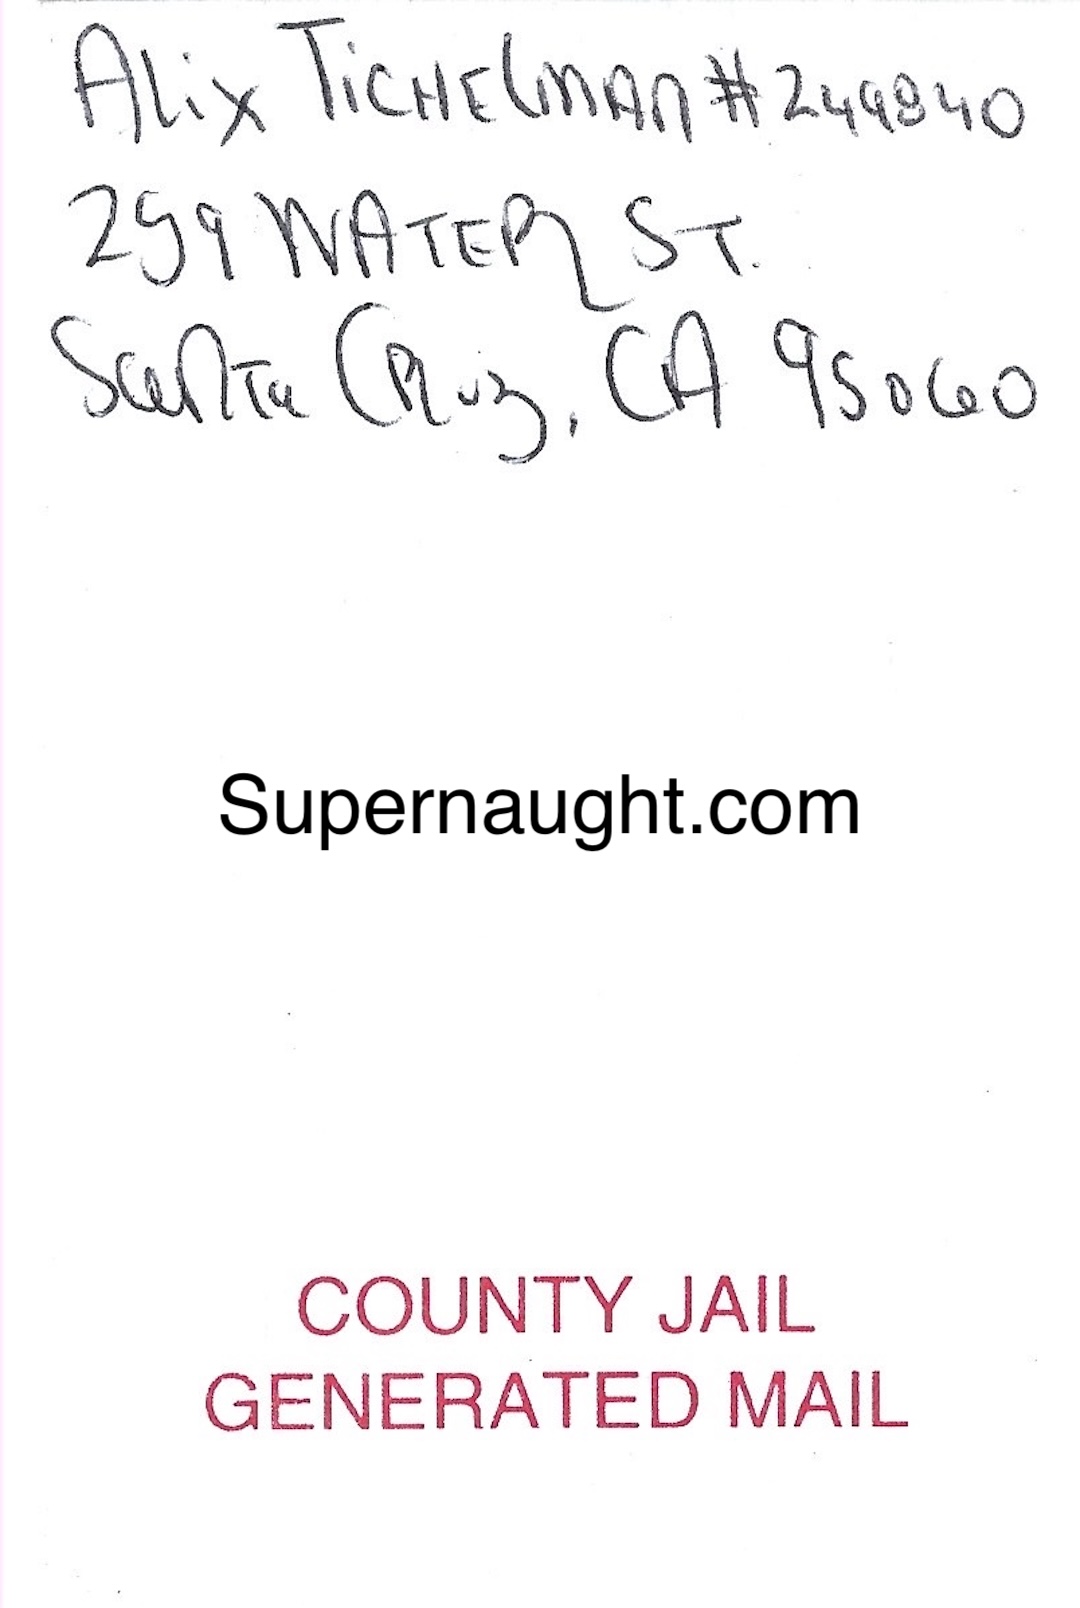 Alix Tichelman #249840
259 Water St.
Santa Cruz, CA 95060
Supernaught.com
COUNTY JAIL
GENERATED MAIL